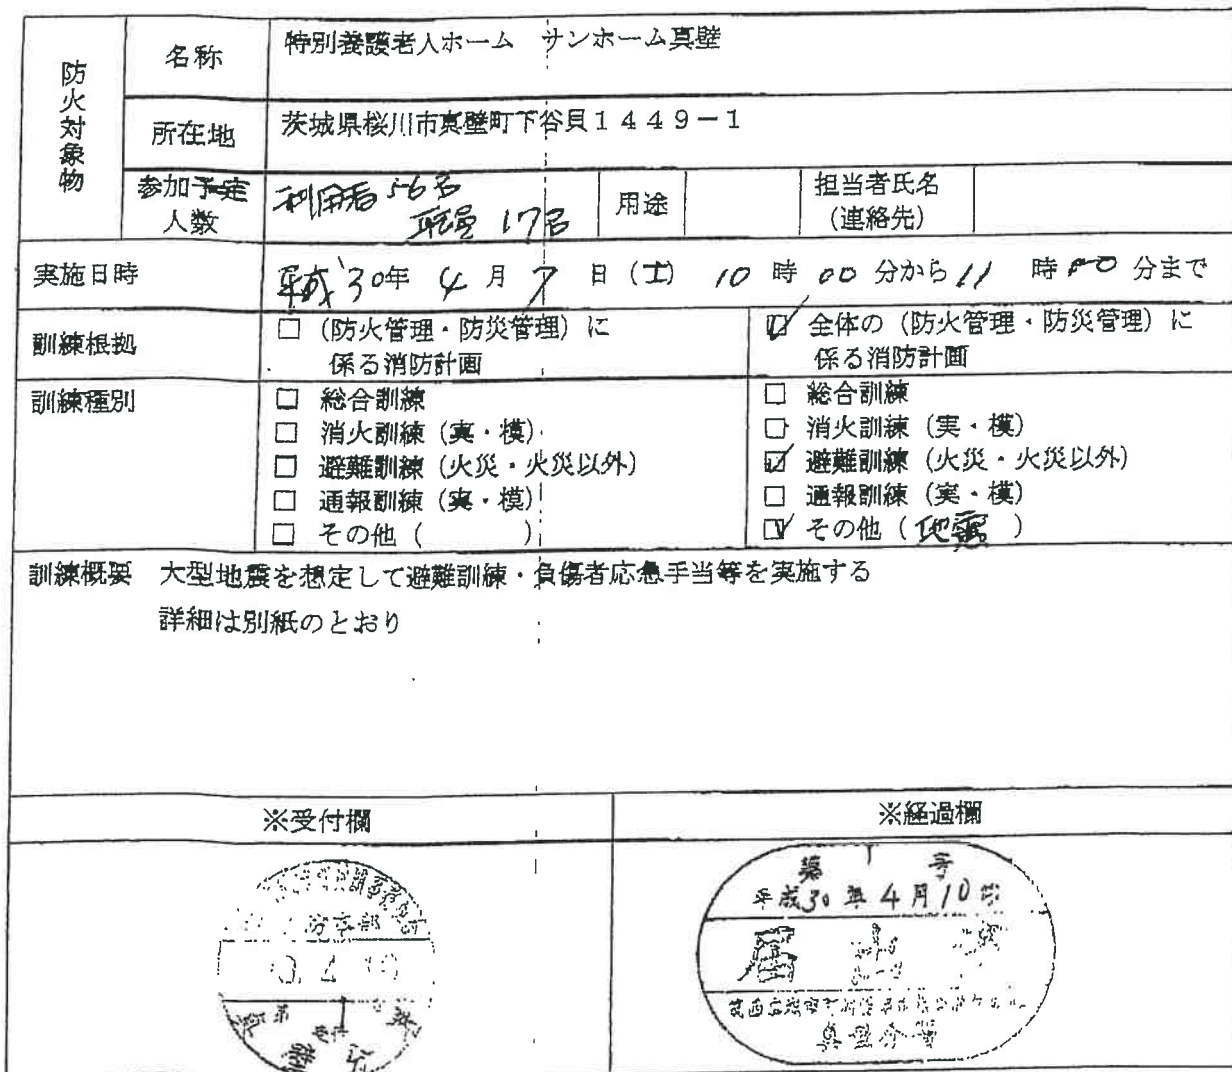 防火対象物
名称 特別養護老人ホーム サンホーム真壁
所在地 茨城県桜川市真壁町下谷貝1449-1
参加予定人数 利用者56名 職員17名 用途 担当者氏名(連絡先)
実施日時 平成30年 4月 7日(土) 10時00分から11時00分まで
訓練根拠 □ (防火管理・防災管理)に ☑ 全体の(防火管理・防災管理)に
係る消防計画 係る消防計画
訓練種別 □ 総合訓練 □ 総合訓練
□ 消火訓練(実・模) □ 消火訓練(実・模)
□ 避難訓練(火災・火災以外) ☑ 避難訓練(火災・火災以外)
□ 通報訓練(実・模) □ 通報訓練(実・模)
□ その他( ) ☑ その他(地震)
訓練概要 大型地震を想定して避難訓練・負傷者応急手当等を実施する
詳細は別紙のとおり
※受付欄 ※経過欄
第 号
平成30年4月10日
届出済
真壁分署